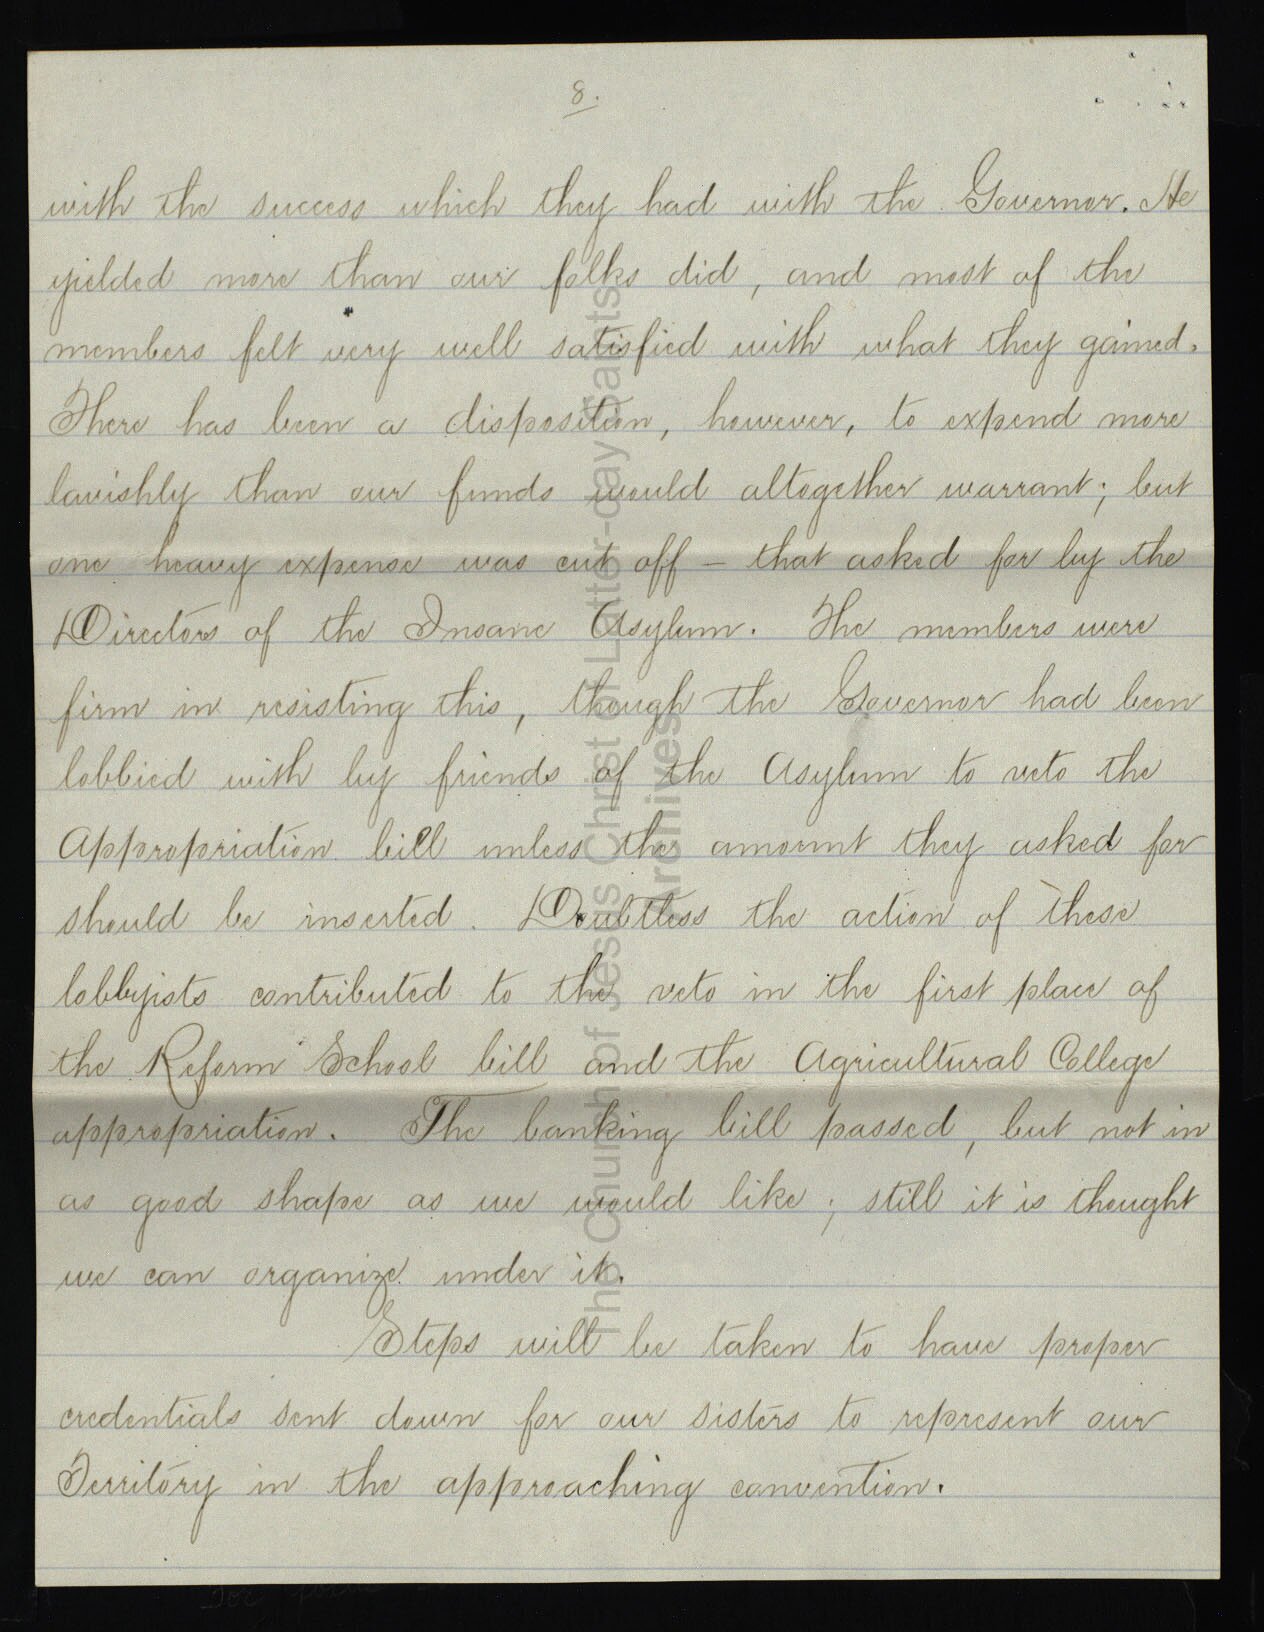 8.
with the success which they had with the Governor. He
yielded more than our folks did, and most of the
members felt very well satisfied with what they gained.
There has been a disposition, however, to expend more
lavishly than our funds would altogether warrant; but
one heavy expense was cut off – that asked for by the
Directors of the Insane Asylum. The members were
firm in resisting this, though the Governor had been
lobbied with by friends of the Asylum to veto the
Appropriation bill unless the amount they asked for
should be inserted. Doubtless the action of these
lobbyists contributed to the veto in the first place of
the Reform School bill and the Agricultural College
appropriation. The banking bill passed, but not in
as good shape as we would like; still it is thought
we can organize under it.
Steps will be taken to have proper
credentials sent down for our sisters to represent our
Territory in the approaching convention.
The Church of Jesus Christ of Latter-day Saints
Archives